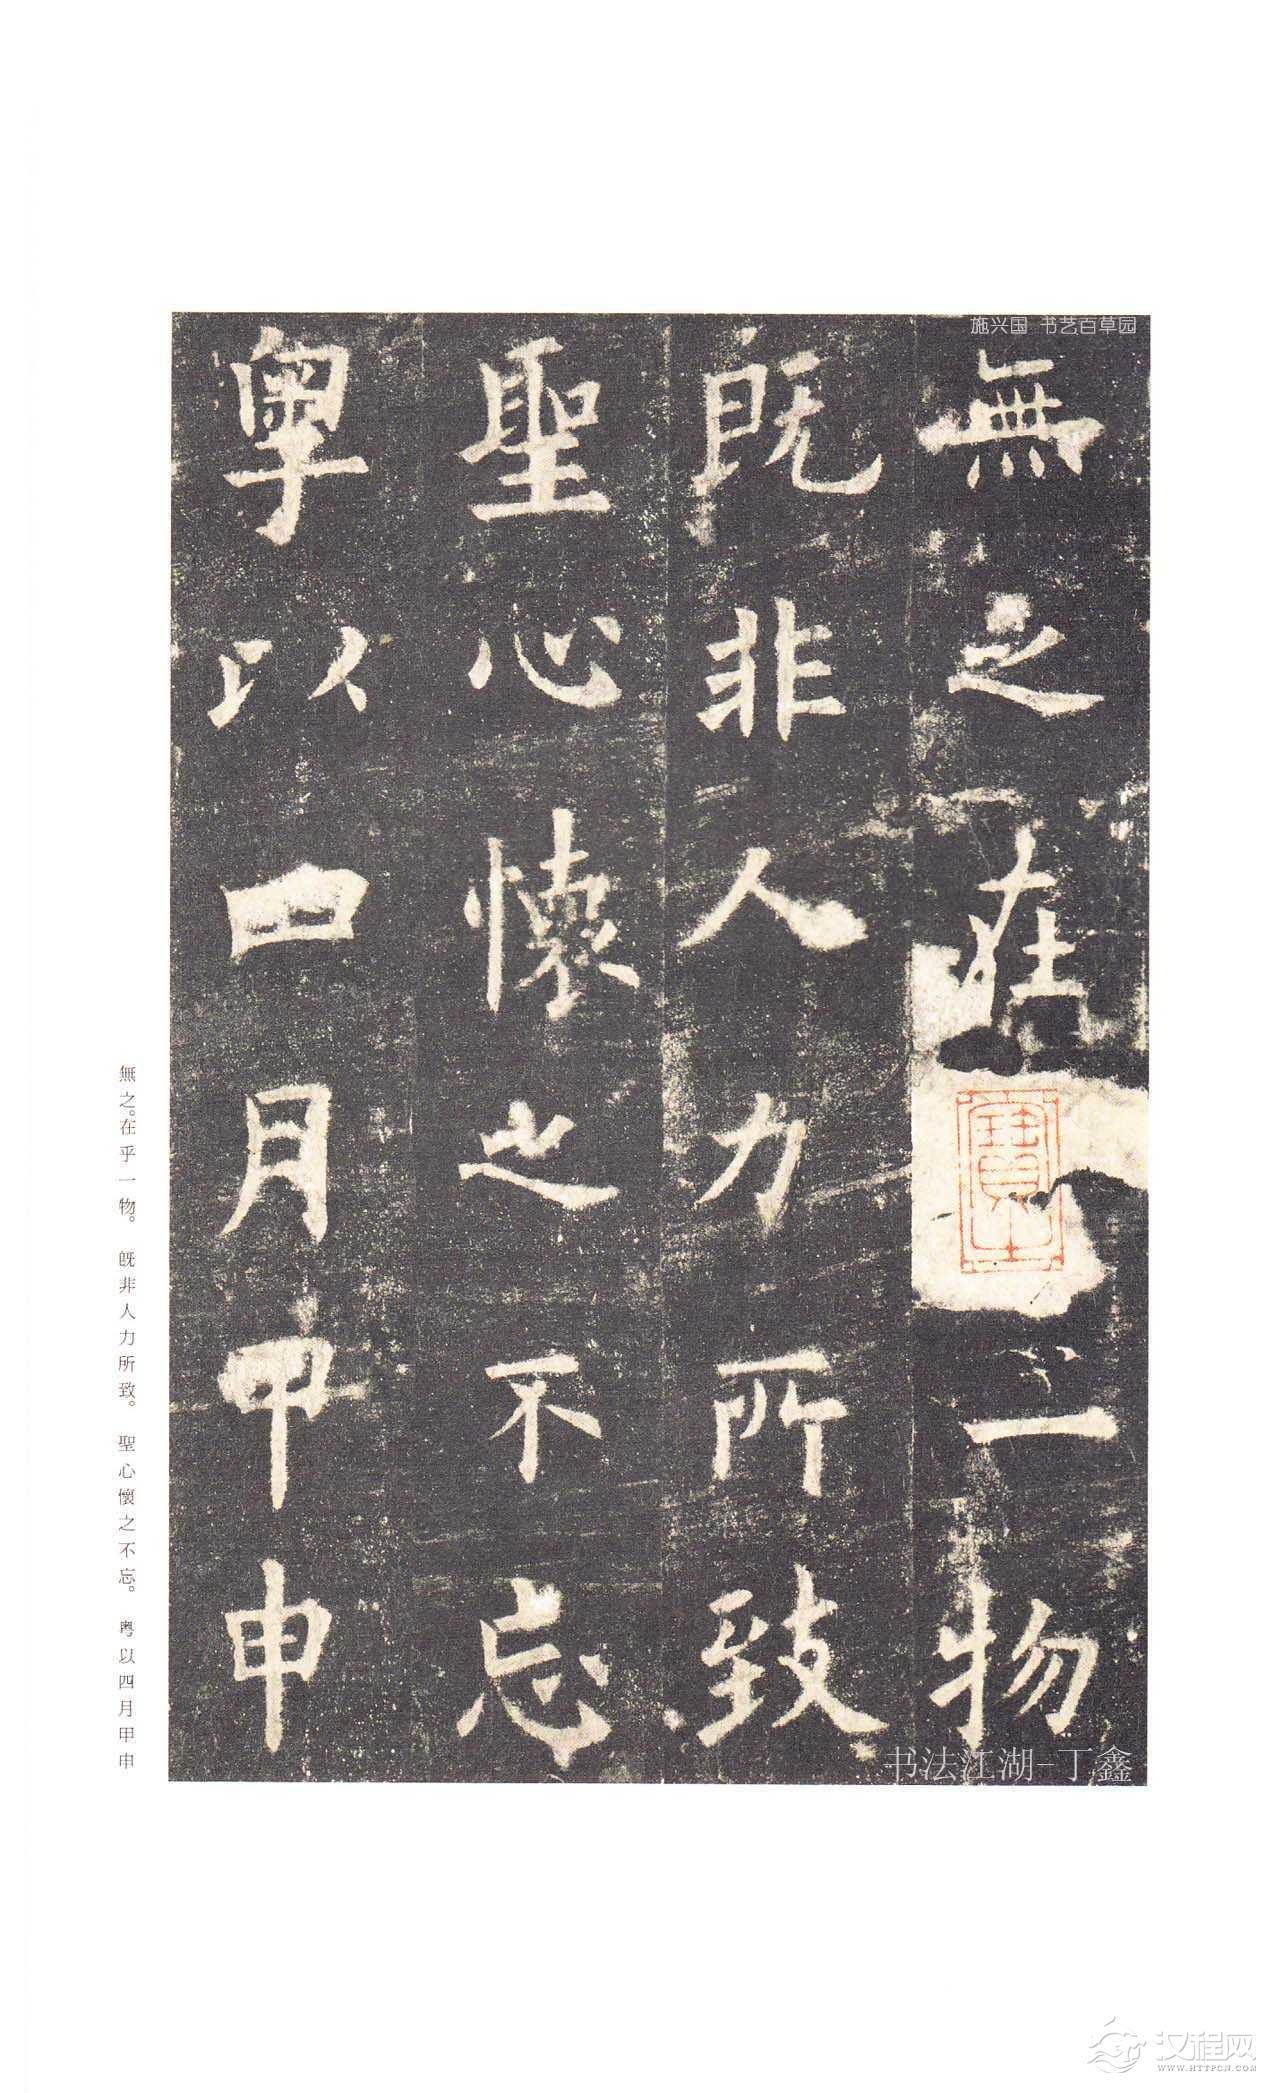 施兴国 书艺百草园
無之在一物
既非人力所致
聖心懷之不忘
粤以四月甲申
書法江湖-丁鑫
無之。在乎一物。 既非人力所致。 聖心懷之不忘。 粤以四月甲申
汉程网
WWW.HTTPCN.COM